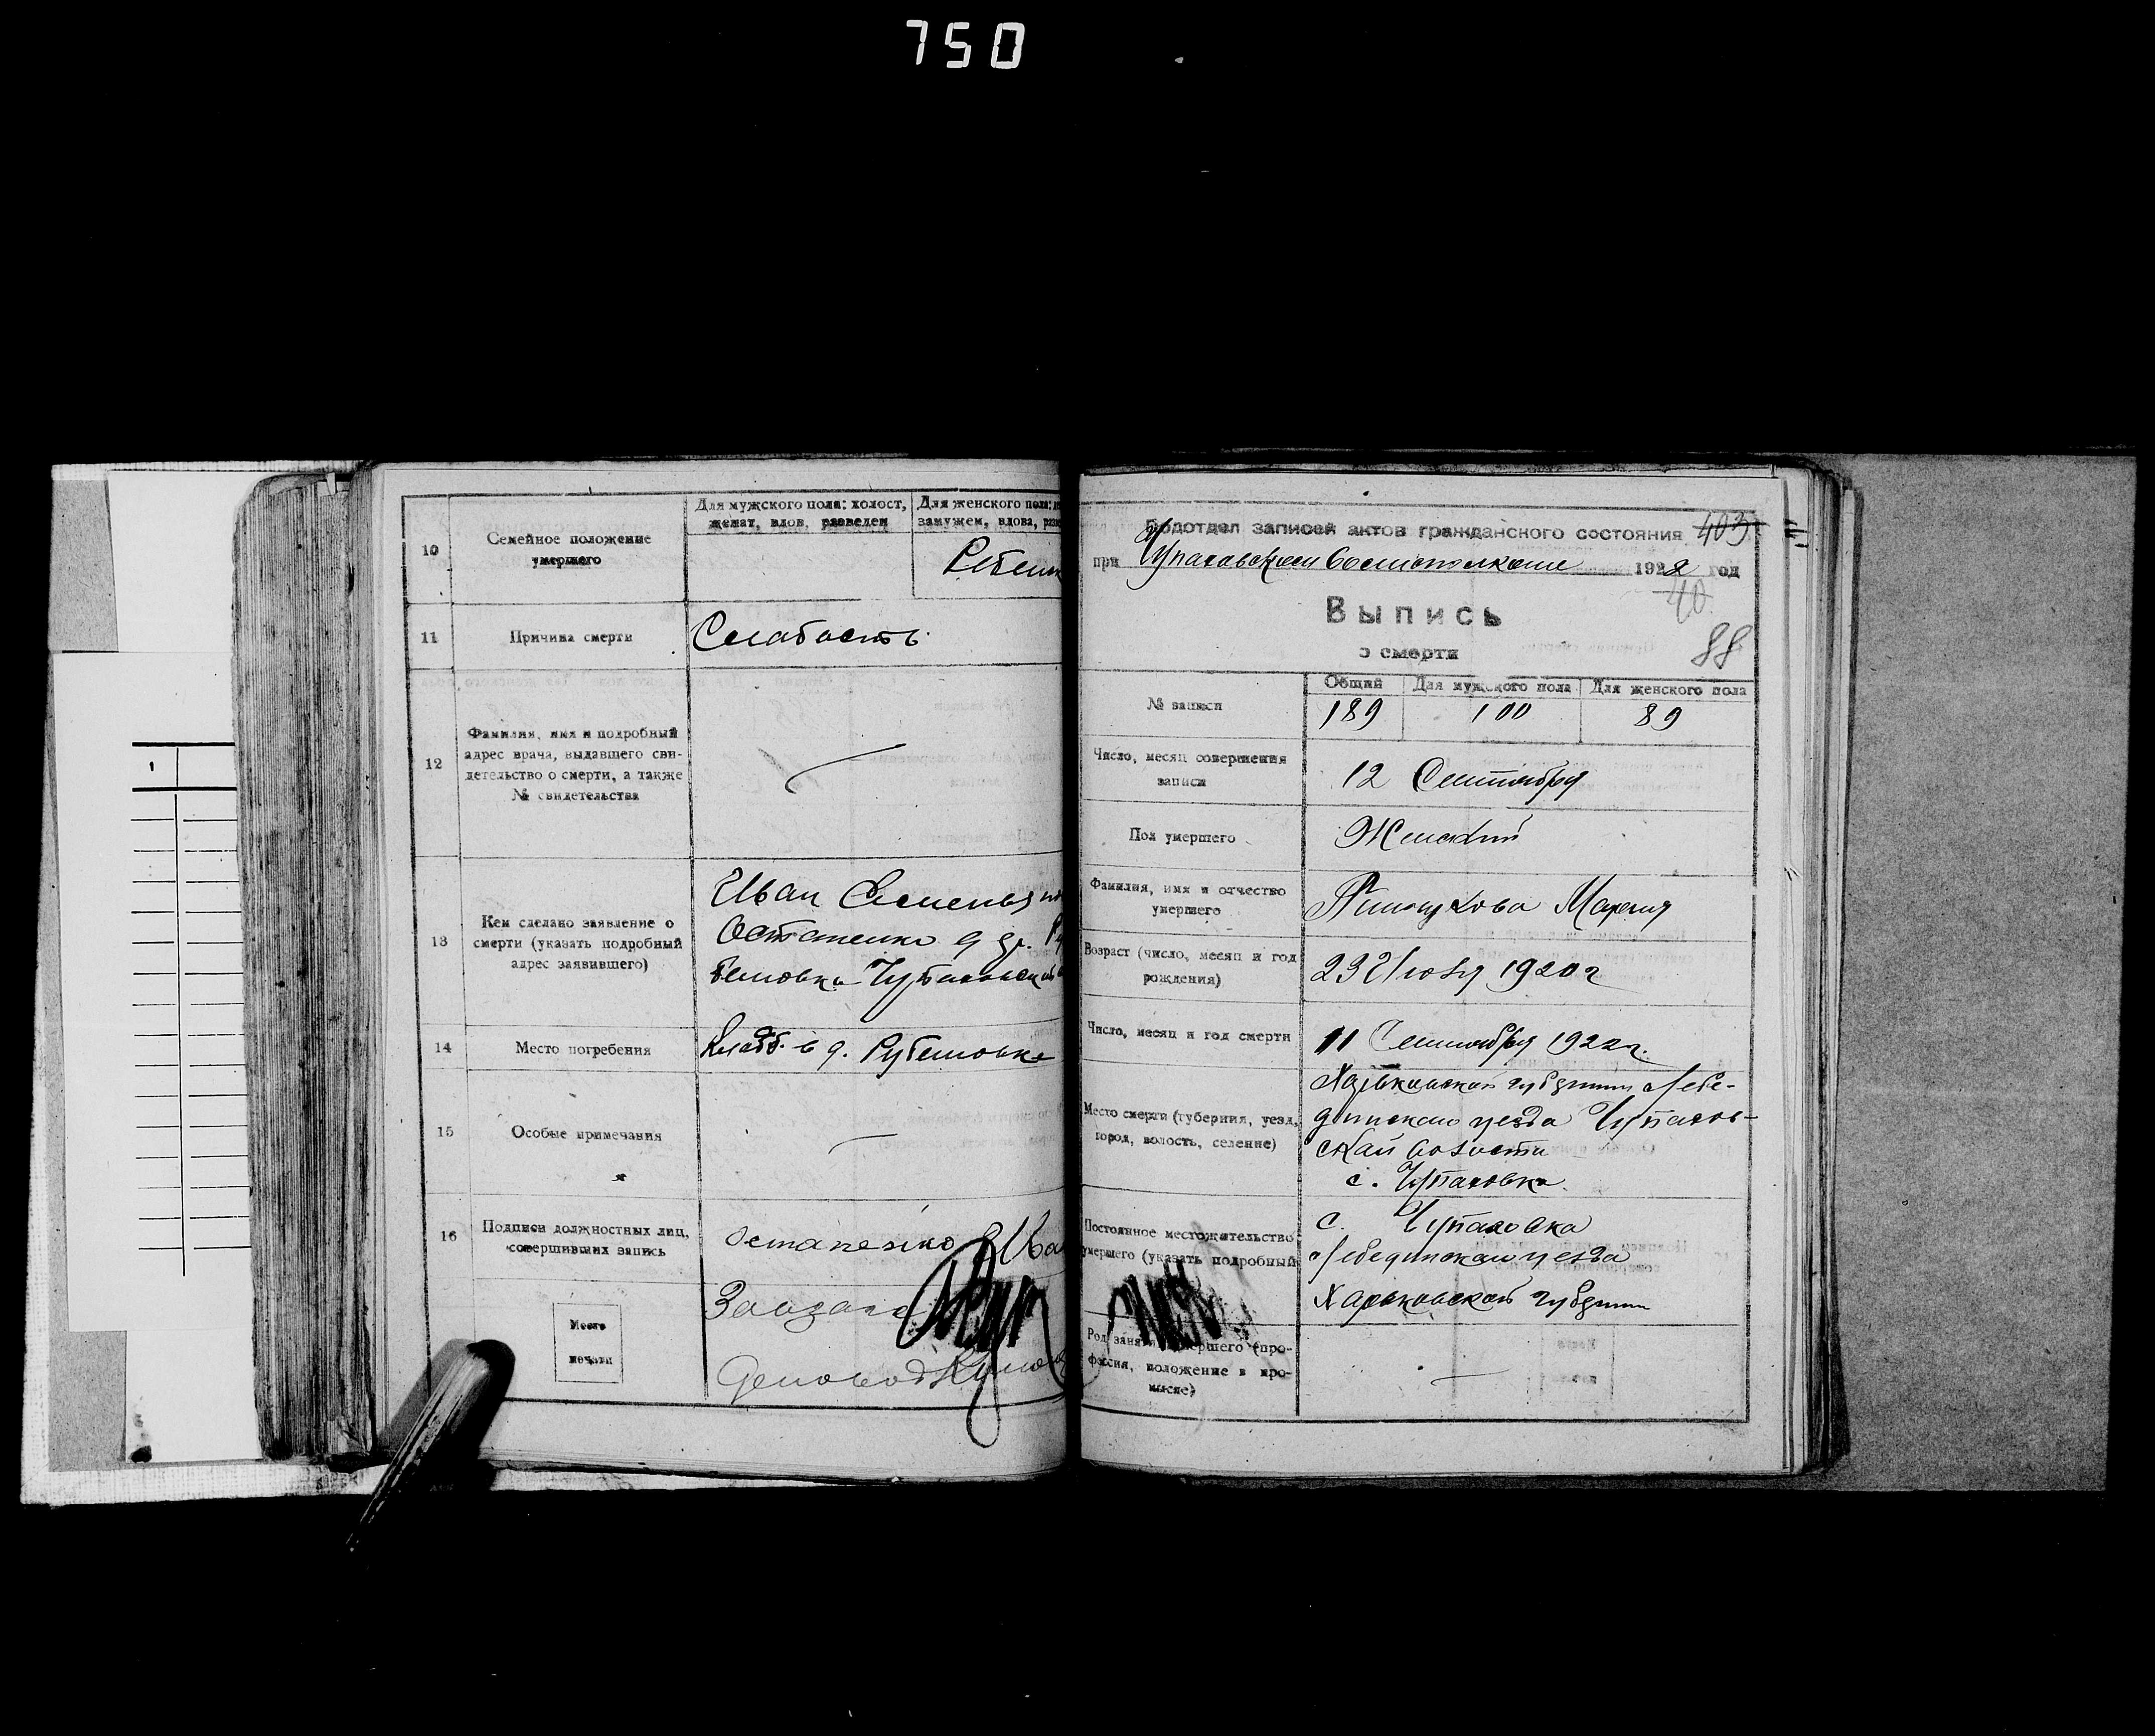 750
10
Семейное положение
умершего
Для мужского пола: холост,
женат, вдов, разведен
Для женского пола:
замужем, вдова,
11
Причина смерти
Слабость
12
Фамилия, имя и подробный
адрес врача, выдавшего сви-
детельство о смерти, а также
№ свидетельства
13
Кем сделано заявление о
смерти (указать подробный
адрес заявившего)
Иван
Остапенко
14
Место погребения
Кладб. в д.
15
Особые примечания
16
Подписи должностных лиц,
совершивших запись
Остапенко
Место
печати
Подотдел записей актов гражданского состояния 403
при Чупаховском 1922 год
40
Выпись
о смерти
88
№ записи
Общий
Для мужского пола
Для женского пола
189
100
89
Число, месяц совершения
записи
12 Сентября
Пол умершего
Женский
Фамилия, имя и отчество
умершего
Мария
Возраст (число, месяц и год
рождения)
23 1920 г
Число, месяц и год смерти
11 Сентября 1922 г.
Место смерти (губерния, уезд,
город, волость, селение)
Харьковской губернии Лебе-
динского уезда Чупахов-
ской волости
с. Чупаховка.
Постоянное местожительство
умершего (указать подробный
с. Чупаховка
Лебединского уезда
Харьковской губернии
Род умершего (про-
фессия, положение в про-
мысле)